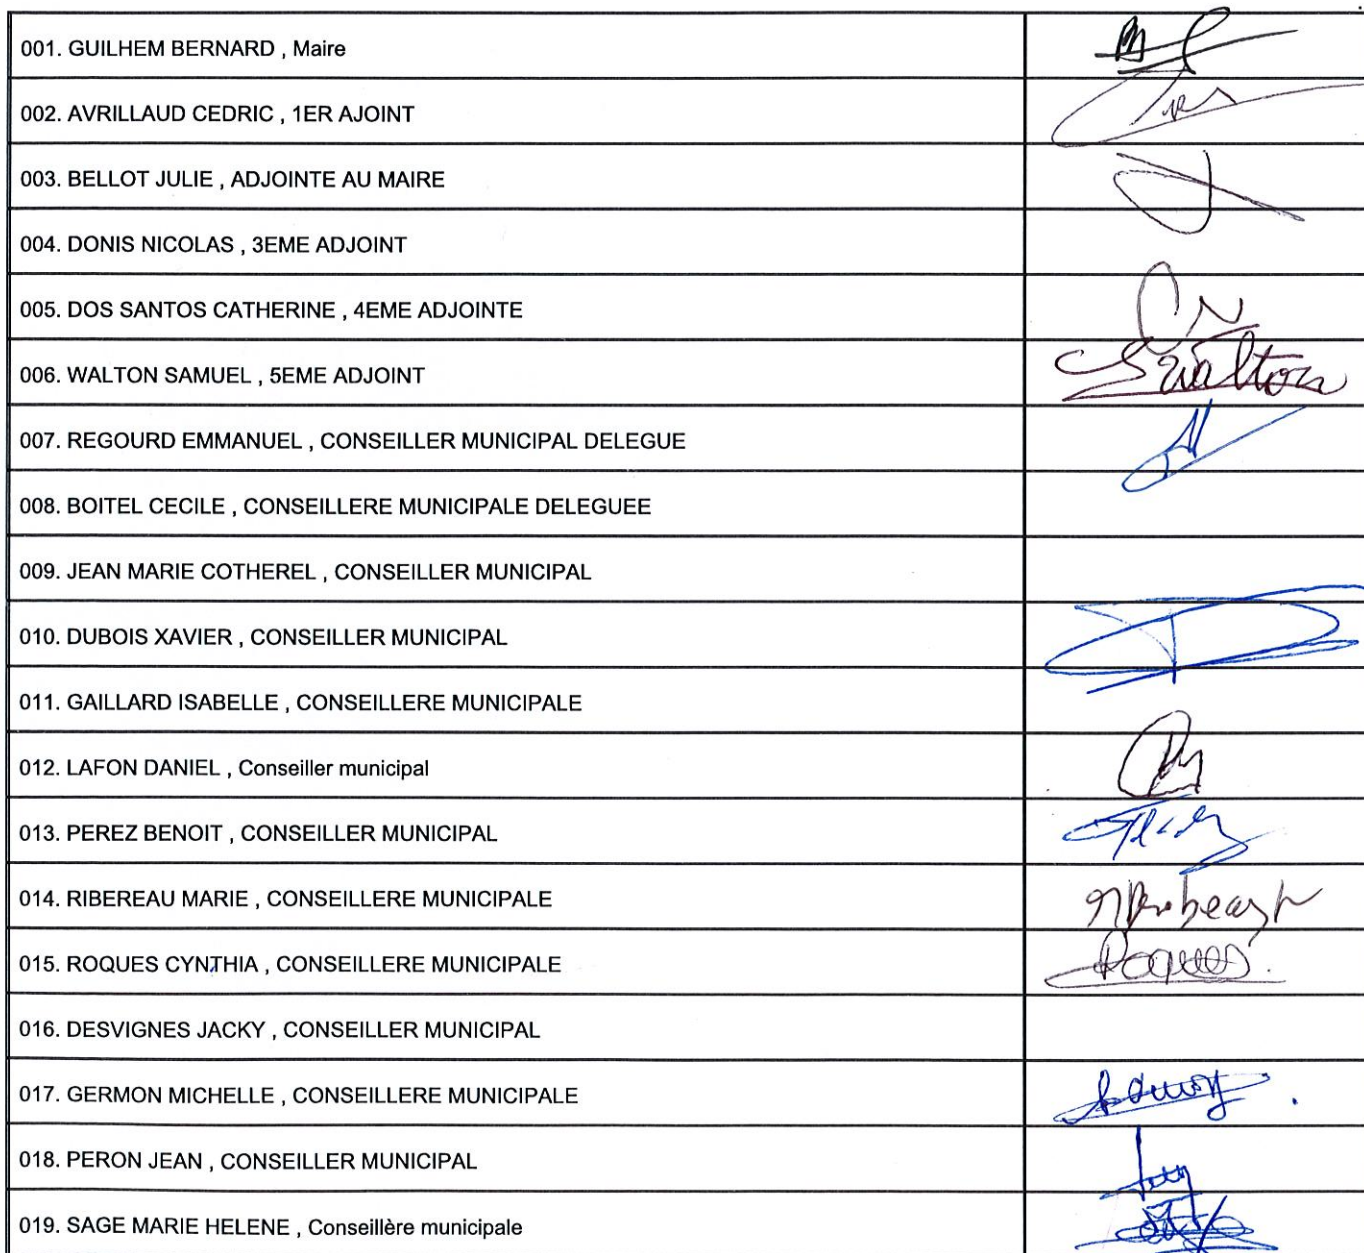 001. GUILHEM BERNARD , Maire
002. AVRILLAUD CEDRIC , 1ER AJOINT
003. BELLOT JULIE , ADJOINTE AU MAIRE
004. DONIS NICOLAS , 3EME ADJOINT
005. DOS SANTOS CATHERINE , 4EME ADJOINTE
006. WALTON SAMUEL , 5EME ADJOINT Swalton
007. REGOURD EMMANUEL , CONSEILLER MUNICIPAL DELEGUE
008. BOITEL CECILE , CONSEILLERE MUNICIPALE DELEGUEE
009. JEAN MARIE COTHEREL , CONSEILLER MUNICIPAL
010. DUBOIS XAVIER , CONSEILLER MUNICIPAL
011. GAILLARD ISABELLE , CONSEILLERE MUNICIPALE
012. LAFON DANIEL , Conseiller municipal
013. PEREZ BENOIT , CONSEILLER MUNICIPAL
014. RIBEREAU MARIE , CONSEILLERE MUNICIPALE
015. ROQUES CYNTHIA , CONSEILLERE MUNICIPALE Roques
016. DESVIGNES JACKY , CONSEILLER MUNICIPAL
017. GERMON MICHELLE , CONSEILLERE MUNICIPALE
018. PERON JEAN , CONSEILLER MUNICIPAL
019. SAGE MARIE HELENE , Conseillère municipale